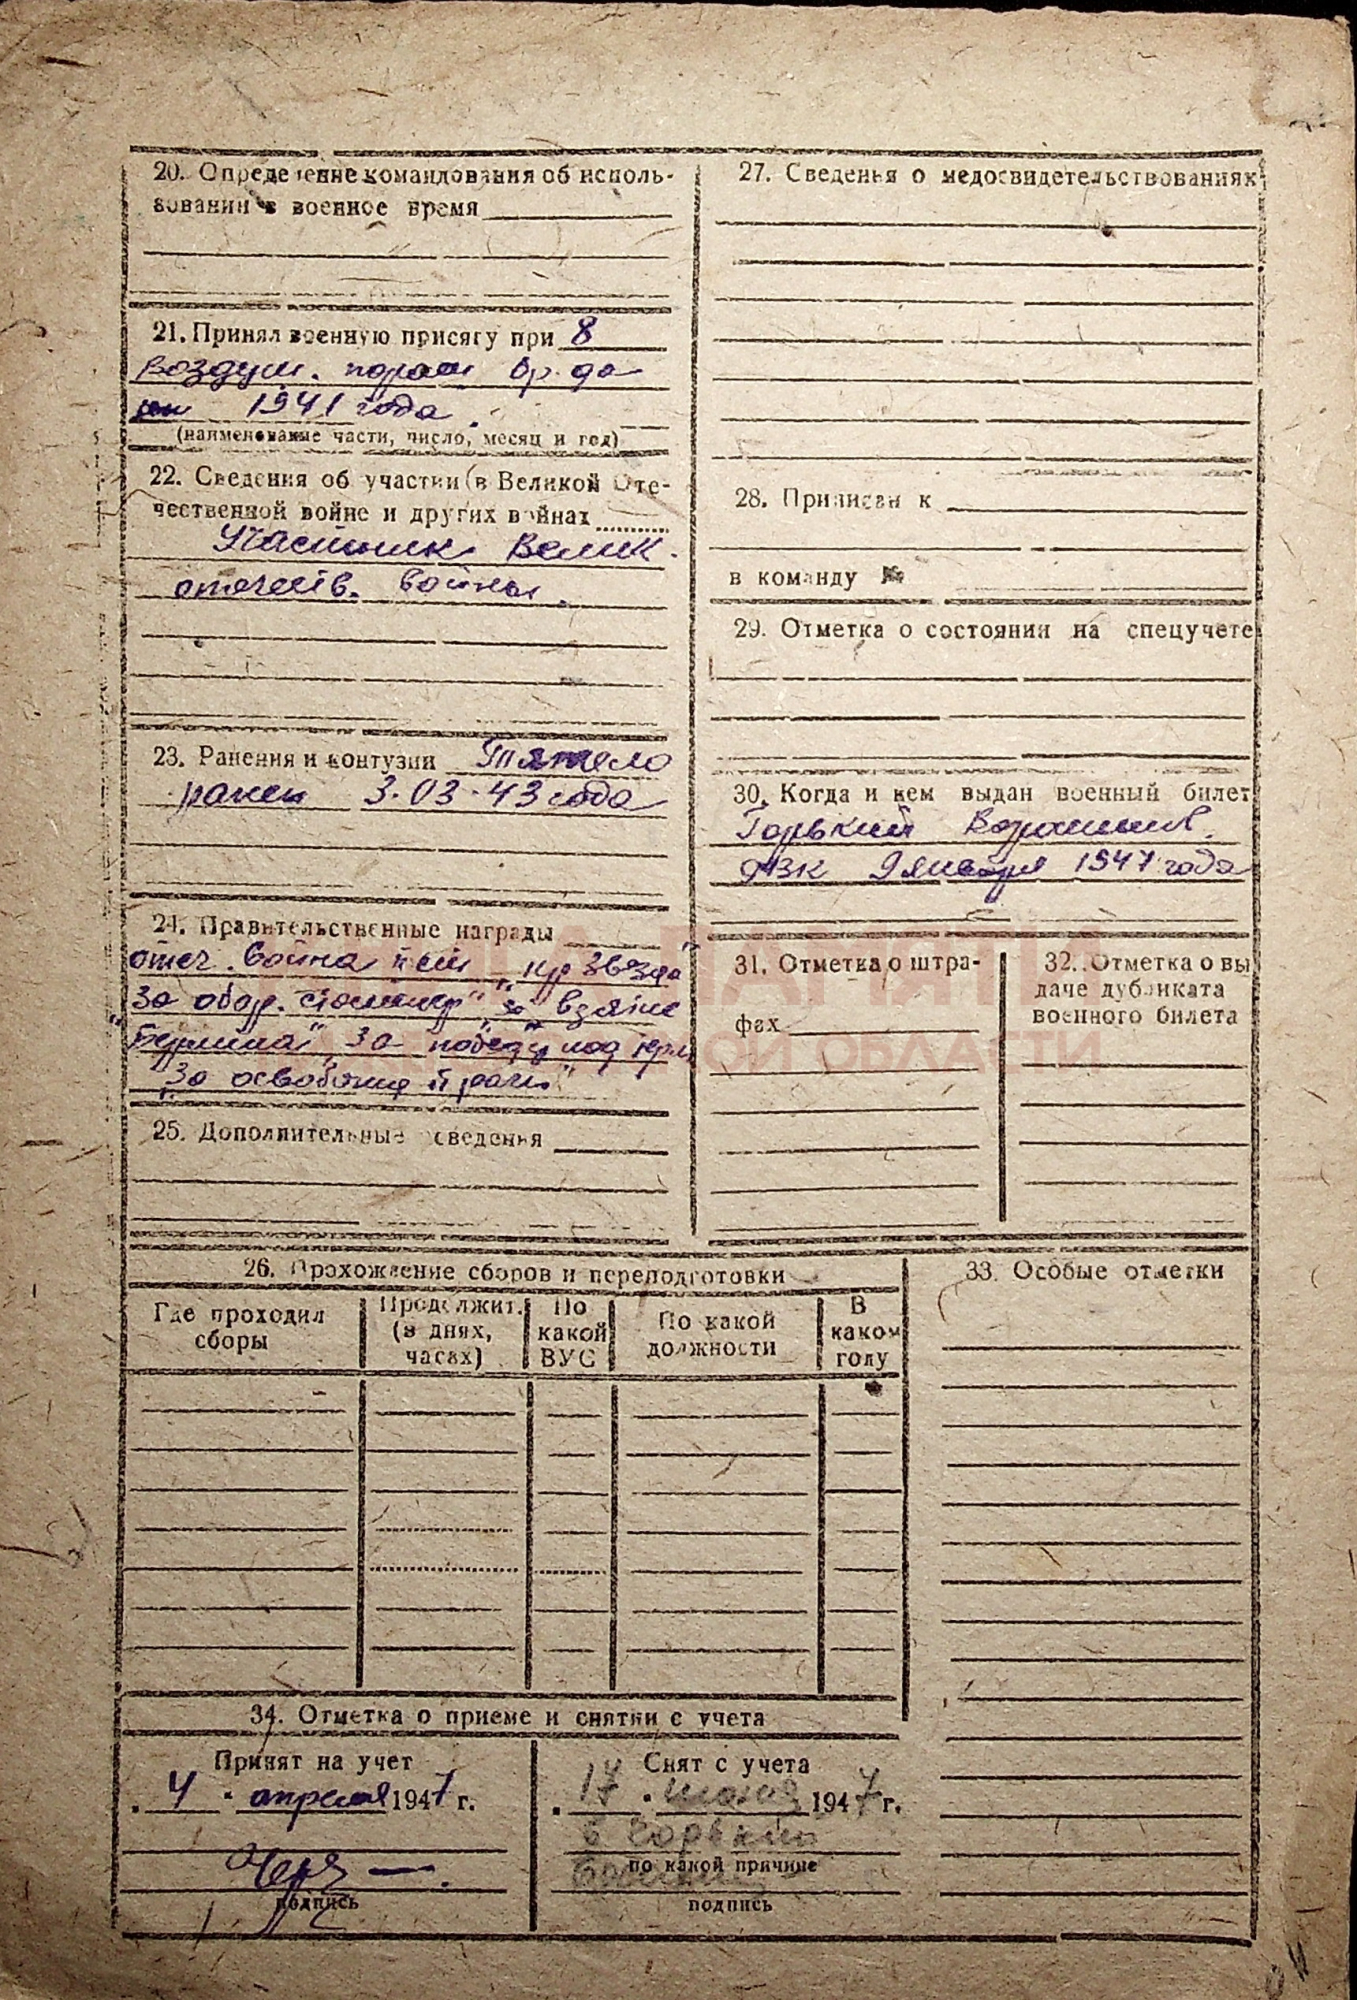 20. Определение командования об исполь-
зовании в военное время
21. Принял военную присягу при 8
воздуш. Бр-да
1941 года
(наименование части, число, месяц и год)
22. Сведения об участии в Великой Оте-
чественной войне и других войнах
Участник Велик.
отечеств. войны.
23. Ранения и контузии Тяжело
ранен 3.03.43 года
24. Правительственные награды
отеч. война II ст "кр звезда"
За обор. "за взятие
"Берлина" За победу над герм
"За освобожд праги"
25. Дополнительные сведения
27. Сведенья о медосвидетельствованиях
28. Приписан к
в команду №
29. Отметка о состоянии на спецучете
30. Когда и кем выдан военный билет
Горький Ворошилов.
РВК 9 января 1947 года
31. Отметка о штра-
фах
32. Отметка о вы
даче дубликата
военного билета
ПАМЯТИ
ОБЛАСТИ
26. Прохождение сборов и переподготовки
Где проходил
сборы
Продолжит.
(в днях,
часах)
По
какой
ВУС
По какой
должности
В
каком
году
33. Особые отметки
34. Отметка о приеме и снятии с учета
Принят на учет
4 апреля 1947 г.
подпись
Снят с учета
17 июня 1947 г.
в Горький
по какой причине
подпись